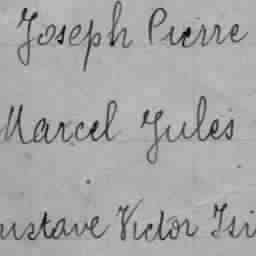 Joseph Pierre
Marcel Jules
ustave Victor Isi